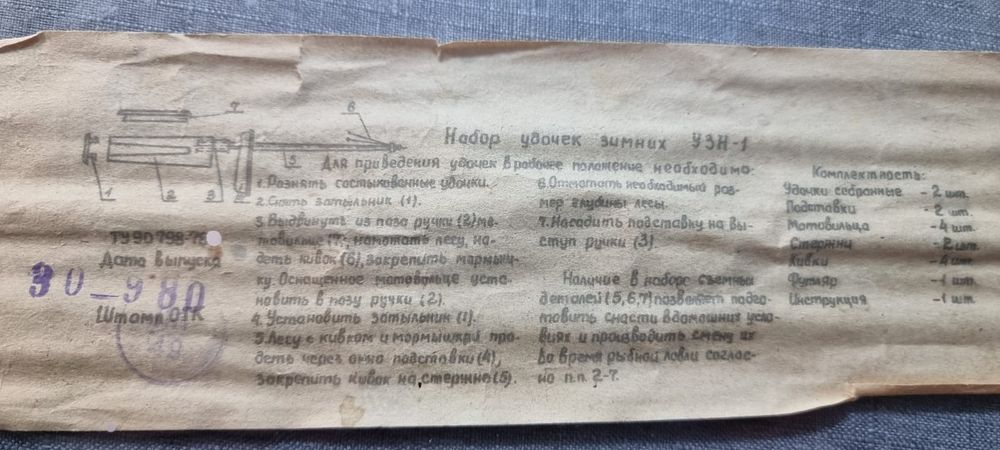 7
6
1
2
3
5
Набор удочек зимних УЗН-1
Для приведения удочек в рабочее положение необходимо:
1. Рознять состыкованные удочки.
2. Снять затыльник (1).
3. Выдвинуть из паза ручки (2) мо-
товильце (7), намотать лесу, на-
деть кивок (6), закрепить мормыш-
ку. Оснащенное мотовильце уста-
новить в пазу ручки (2).
4. Установить затыльник (1).
5. Лесу с кивком и мормышкой про-
деть через окно подставки (4),
закрепить кивок на стержне (5).
6. Отмотать необходимый раз-
мер глубины лесы.
7. Насадить подставку на вы-
ступ ручки (3).
Наличие в наборе съемных
деталей (5,6,7) позволяет подго-
товить снасти в домашних усло-
виях и производить смену их
во время рыбной ловли соглас-
но п.п. 2-7.
Комплектность:
Удочки собранные - 2 шт.
Подставки - 2 шт.
Мотовильца - 4 шт.
Стержни - 2 шт.
Кивки - 4 шт.
Футляр - 1 шт.
Инструкция - 1 шт.
ТУ 90 798-
Дата выпуска
30_980
Штамп ОТК